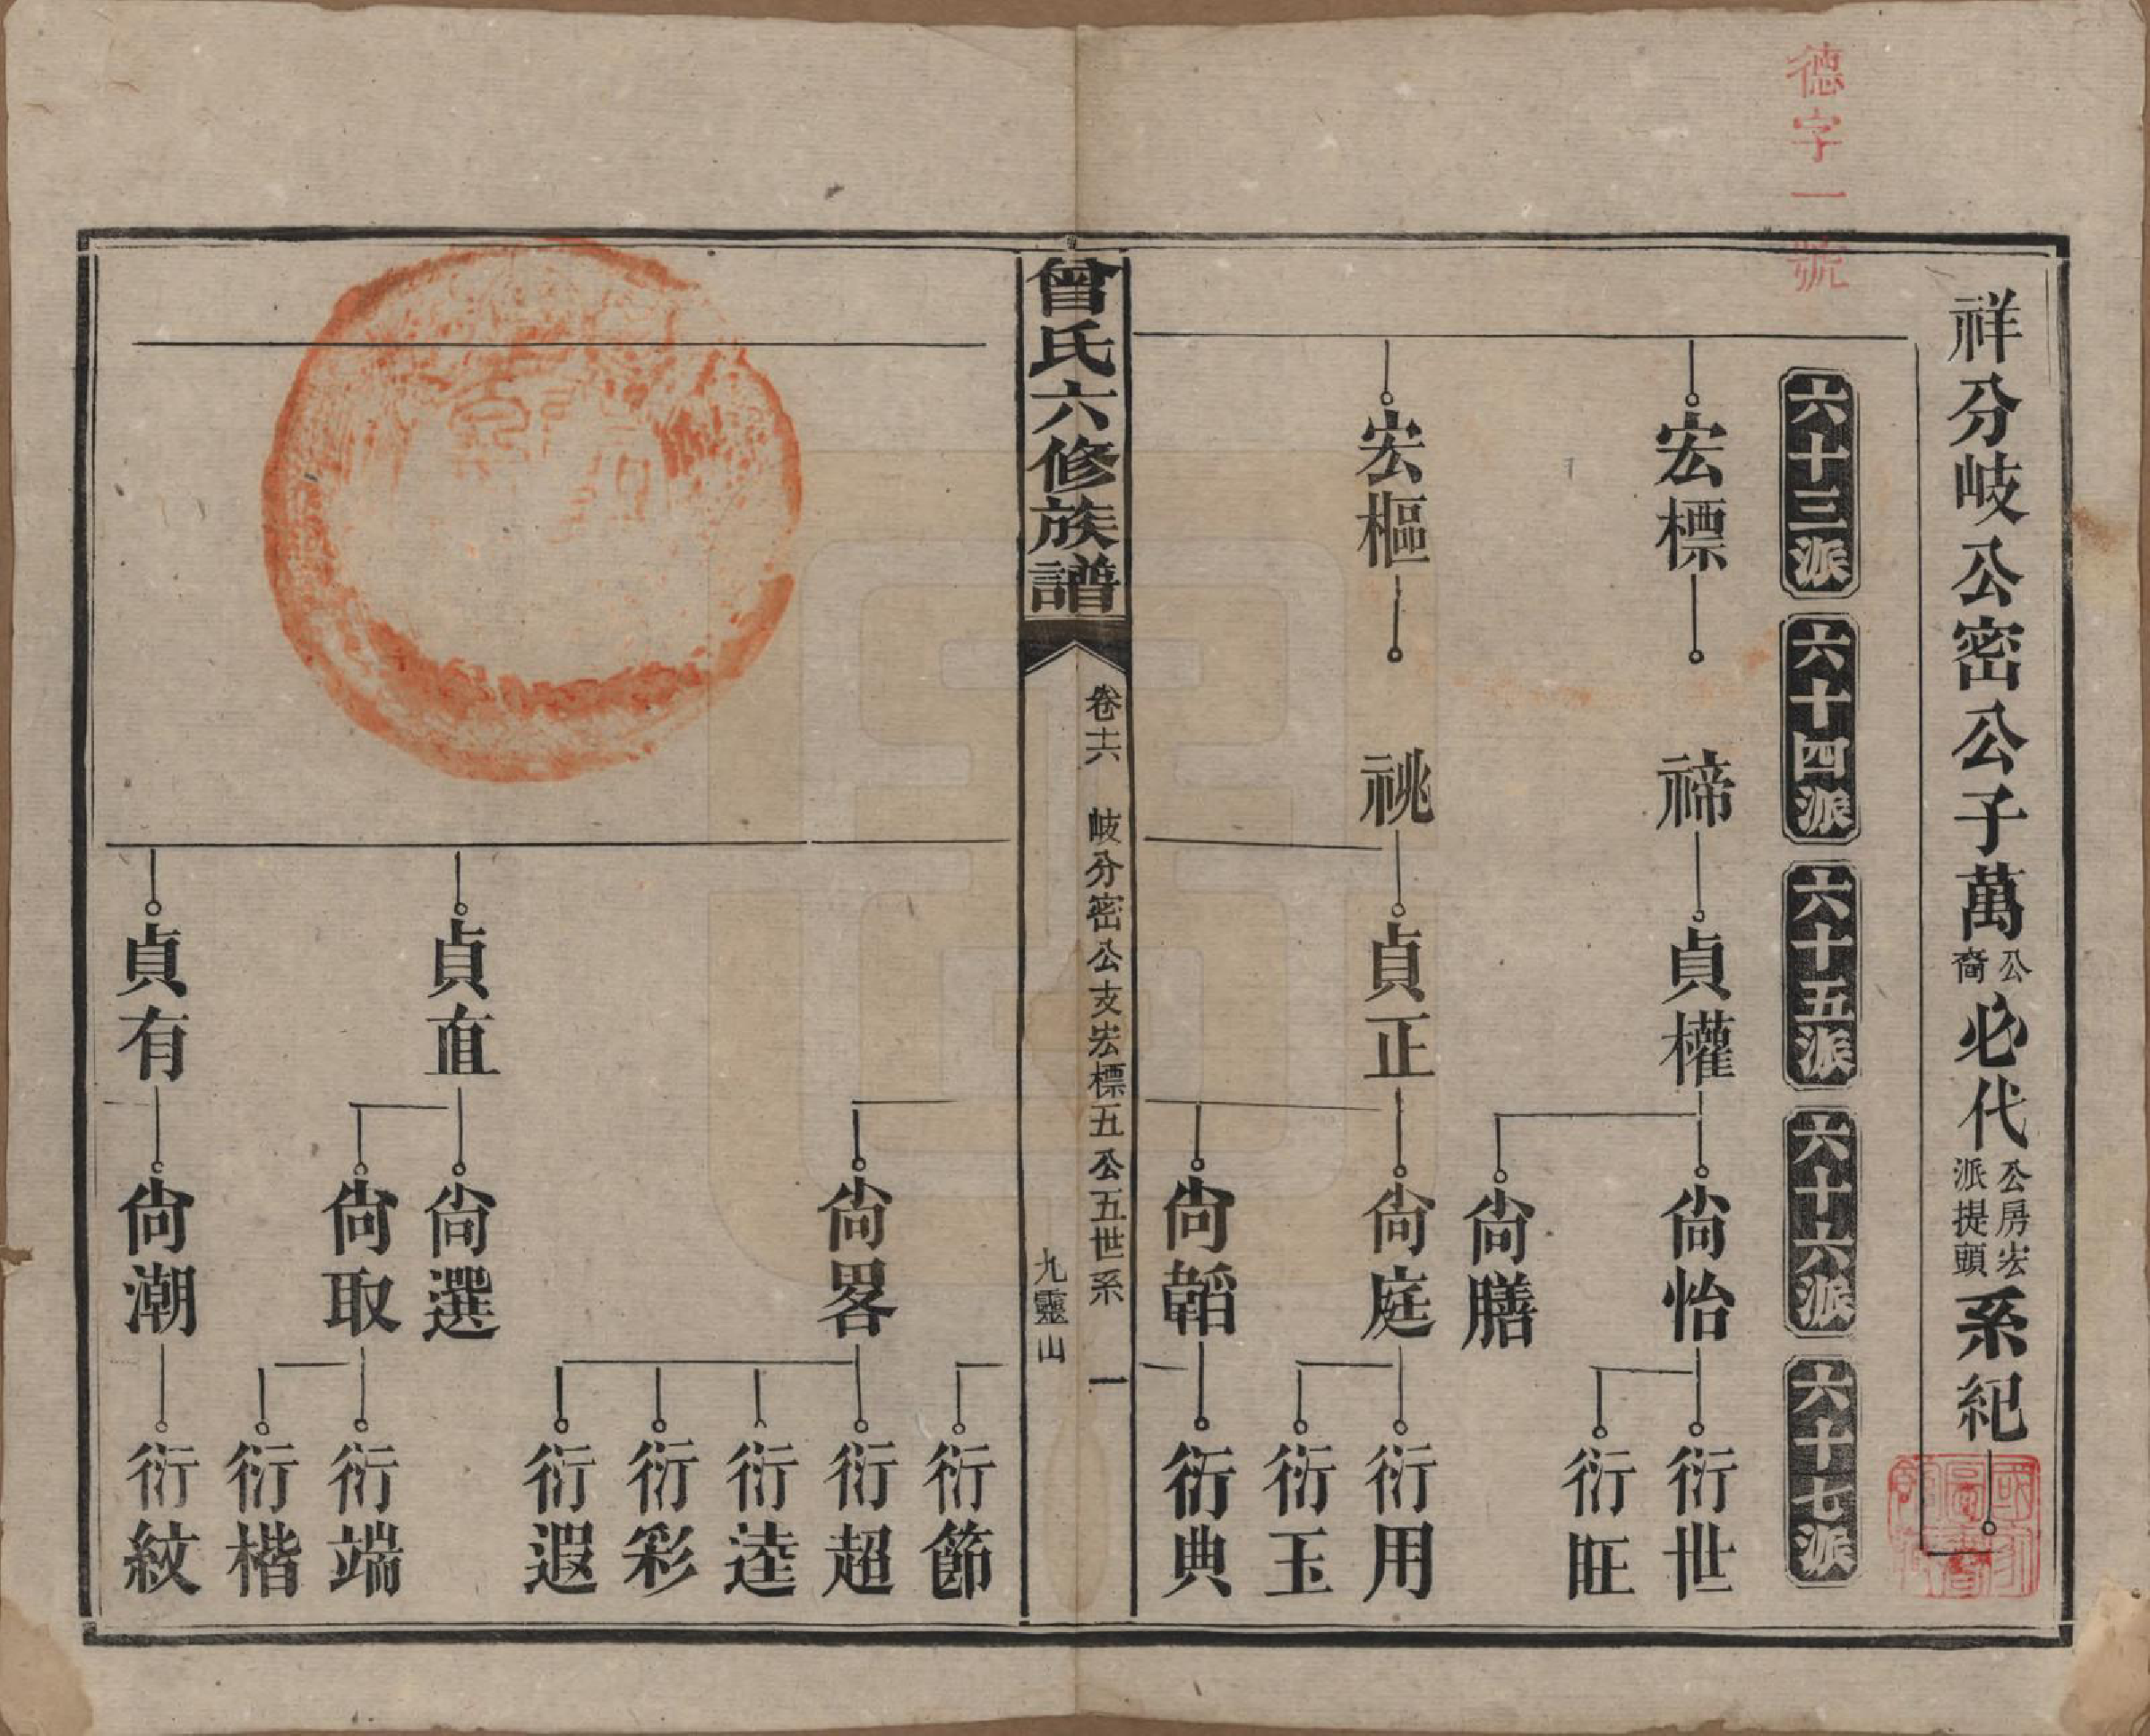 德字一號
祥分岐公密公子萬公裔必代公房宏派提頭系紀
六十三派
六十四派
六十五派
六十六派
六十七派
宏標
禘
貞權
尙怡
衍世
衍旺
尙膳
宏樞
祧
貞正
尙庭
衍用
衍玉
尙韜
衍典
曾氏六修族譜
卷十六
岐分密公支宏標五公五世系
一
九靈山
衍節
尙畧
衍超
衍逵
衍彩
衍遐
貞直
尙選
尙取
衍端
衍楷
貞有
尙潮
衍紋